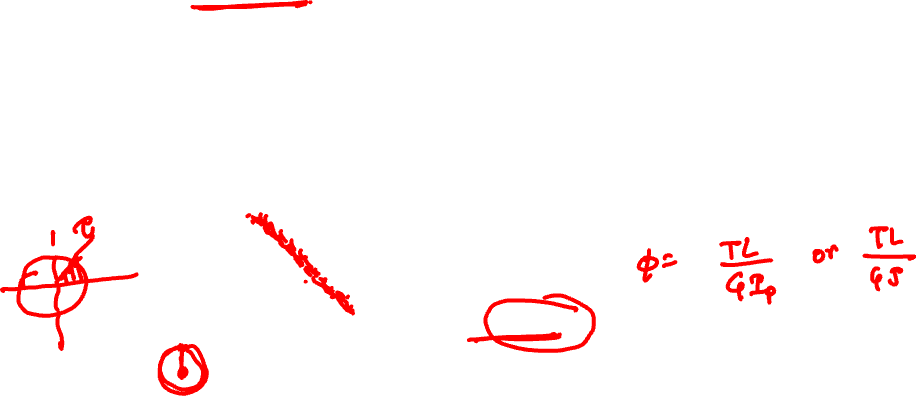 τ
φ = TL/GIp or TL/GJ